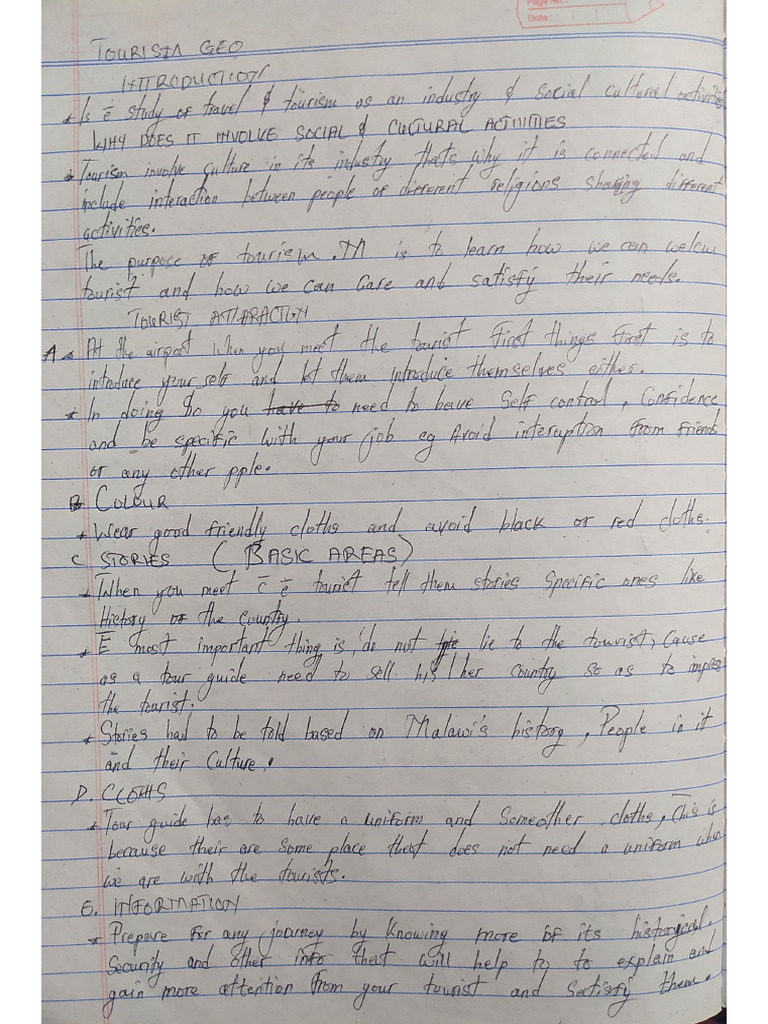 Page No.:
Date:
TOURISM GEO
INTRODUCTION
* Is ē study of travel & tourism as an industry & social cultural activities
WHY DOES IT INVOLVE SOCIAL & CULTURAL ACTIVITIES
* Tourism involve culture in its industry thats why it is connected and
include interaction between people of different religions sharing different
activities.
The purpose of tourism .M is to learn how we can welcm
tourist and how we can care and satisfy their needs.
TOURIST ATTARACTION
A * At the airport when you meet the tourist First things First is to
introduce yourself and let them introduce themselves either.
* In doing so you have to need to have self control, Confidence
and be specific with your job eg Avoid interuption from friends
or any other pple.
B COLOUR
* Wear good friendly cloths and avoid black or red cloths.
C STORIES (BASIC AREAS)
* When you meet c̄ ē tourist tell them stories specific ones like
History of the country.
* Ē most important thing is, do not lie to the tourist, cause
as a tour guide need to sell his/her country so as to impres
the tourist.
* Stories had to be told based on Malawi's history, People in it
and their culture.
D. CLOTHS
* Tour guide has to have a uniform and someother cloths, This is
because their are some place that does not need a uniform when
we are with the tourists.
E. INFORMATION
* Prepare for any journey by knowing more of its historical.
Security and other info that will help to to explain and
gain more attention from your tourist and Sectisfy them.